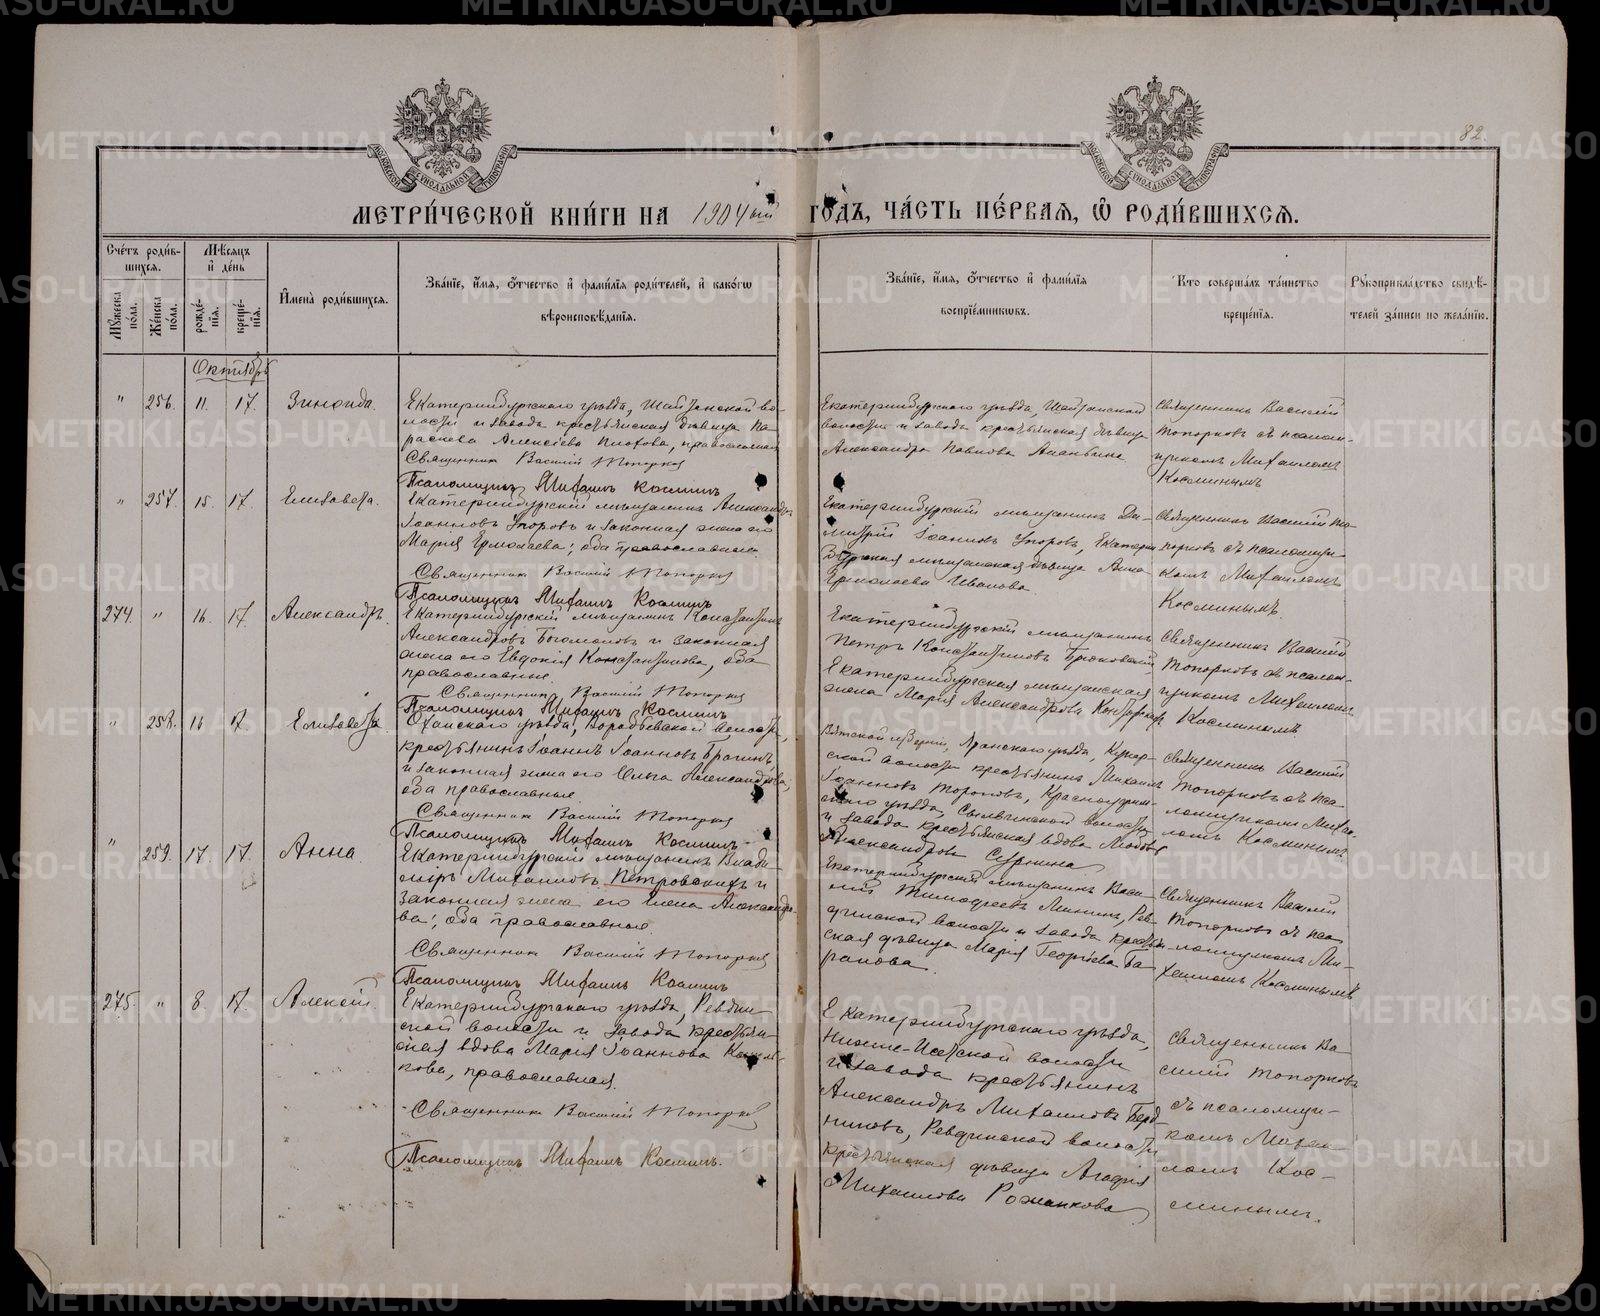 82
МЕТРИ́ЧЕСКОЙ КНИ́ГИ НА 1904ый ГОДЪ, ЧА́СТЬ ПЕ́РВАЯ, Ѡ РОДИ́ВШИХСЯ.
Счетъ роди́в-
шихся.
Мѣсяцъ
и день
Мужеска
пола.
Женска
пола.
рожде-
нія.
креще-
нія.
Имена роди́вшихся.
Зва́ніе, и́мя, о́тчество и фами́лія роди́телей, и како́гѡ
вѣроисповѣ́данія.
Зва́ніе, и́мя, о́тчество и фами́лія
воспріе́мниковъ.
Кто соверша́лъ та́инство
креще́нія.
Рукоприкла́дство свидѣ́-
телей за́писи по жела́нію.
Октябрь
" 256. 11. 17. Зинаида.
Екатеринбургскаго уѣзда, Шайтанской во-
лости и завода крестьянская дѣвица Па-
раскева Алексѣева Плотова, православная
Священникъ Василій Топорков
Псаломщикъ Михаилъ Косминъ
Екатеринбургскаго уѣзда, Шайтанской
волости и завода крестьянская дѣвица
Александра Павлова Ананьина.
Священникъ Василій
Топорковъ съ псалом-
щикомъ Михаиломъ
Косминымъ
" 257. 15. 17. Елизавета.
Екатеринбургскій мѣщанинъ Александръ
Іоанновъ Упоровъ и законная жена его
Марія Ермолаева; оба православные
Священникъ Василій Топорков
Псаломщикъ Михаилъ Косминъ
Екатеринбургскій мѣщанинъ Ди-
митрій Іоанновъ Упоровъ, Екатерин
бургская мѣщанская дѣвица Анна
Ермолаева Иванова
Священникъ Василій То-
порковъ съ псаломщи-
комъ Михаиломъ
Косминымъ.
274. " 16. 17. Александръ.
Екатеринбургскій мѣщанинъ Константинъ
Александровъ Богомоловъ и законная
жена его Евдокія Константинова, оба
православные.
Священникъ Василій Топорков
Псаломщикъ Михаилъ Косминъ
Екатеринбургскій мѣщанинъ
Петръ Константиновъ
Екатеринбургская мѣщанская
жена Марія Александрова
Священникъ Василій
Топорковъ съ псалом-
щикомъ Михаиломъ
Косминымъ.
" 258. 16 17. Елизавета.
Оханскаго уѣзда, Воробьевской волости,
крестьянинъ Іоаннъ Іоанновъ Брагинъ
и законная жена его Ольга Александрова,
оба православные
Священникъ Василій Топорков
Псаломщикъ Михаилъ Косминъ
Вятской губерніи, Яранскаго уѣзда, Кукар-
ской волости крестьянинъ Михаилъ
Іоанновъ Тороповъ, Красноуфим-
скаго уѣзда, Сылвинской волости
и завода крестьянская вдова Любовь
Александрова
Священникъ Василій
Топорковъ съ пса-
ломщикомъ Михаи-
ломъ Косминымъ.
" 259. 17. 17. Анна.
Екатеринбургскій мѣщанинъ Влади-
міръ Михаиловъ Петровскихъ и
законная жена его Елена Александро-
ва; оба православные.
Священникъ Василій Топорков
Псаломщикъ Михаилъ Косминъ
Екатеринбургскій мѣщанинъ Васи-
лій Тимофеевъ Мининъ, Рев-
динской волости и завода крестьян-
ская дѣвица Марія Георгіева Ба-
ранова.
Священникъ Василій
Топорковъ съ пса-
ломщикомъ Ми-
хаиломъ Косминымъ
275. " 8. 17. Алексѣй.
Екатеринбургскаго уѣзда, Ревдин-
ской волости и завода крестьян-
ская вдова Марія Іоаннова
кова, православная.
Священникъ Василій Топорков
Псаломщикъ Михаилъ Косминъ.
Екатеринбургскаго уѣзда,
Нижне-Исетской волости
и завода крестьянинъ
Александръ Михаиловъ Берд-
никовъ, Ревдинской волости
крестьянская дѣвица Агафія
Михаилова Романкова
Священникъ Ва-
силій Топорковъ
съ псаломщи-
комъ Михаи-
ломъ Кос-
минымъ.